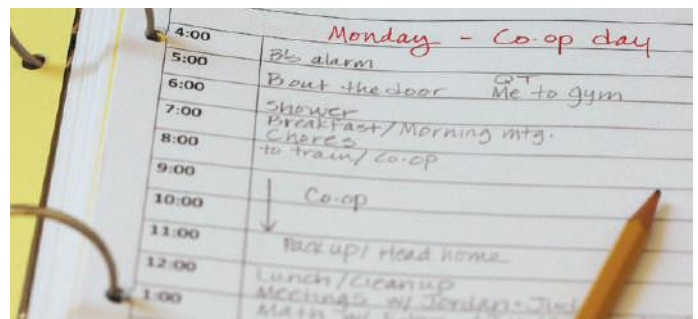 Monday - Co-op day
4:00
5:00 B's alarm
6:00 B out the door QT
Me to gym
7:00 Shower
Breakfast/Morning mtg.
8:00 Chores
to train/Co-op
9:00
10:00 Co-op
11:00
Pack up/Head home
12:00
Lunch/Cleanup
1:00 Meetings w/ Jordan +
Math w/